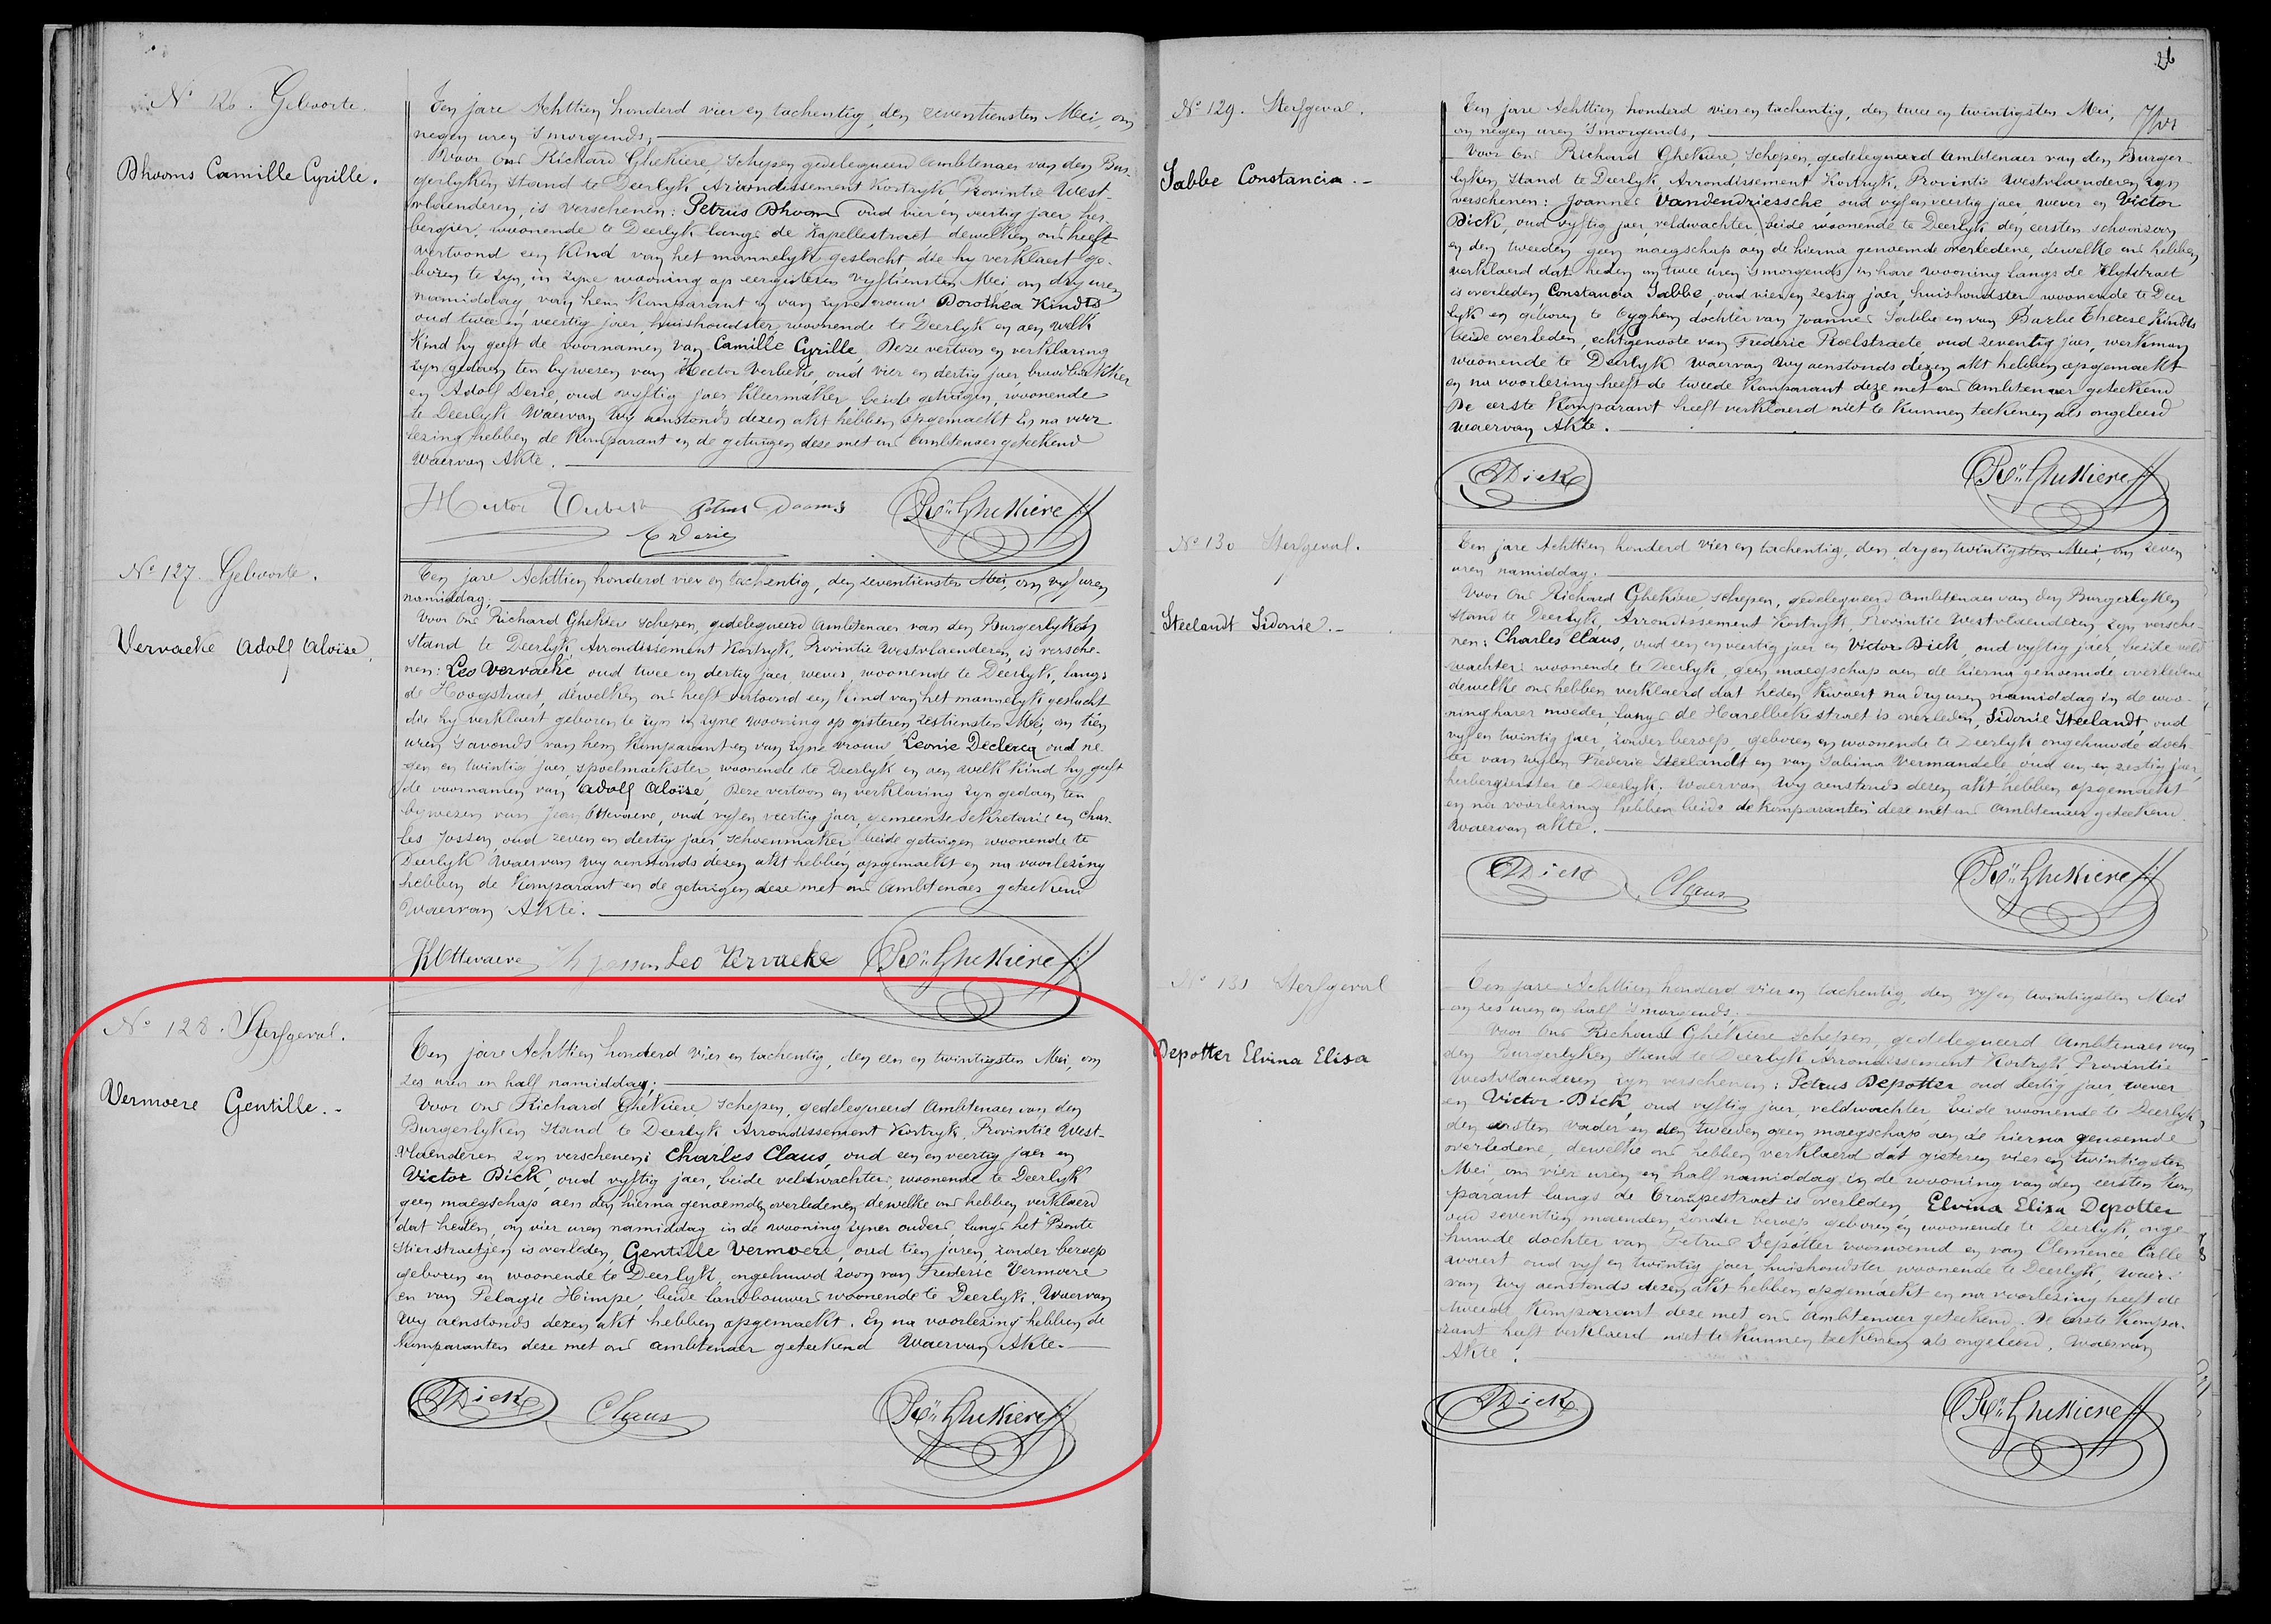 Nº 126. Geboorte.
Dhooms Camille Cyrille.
Ten jare Achttien honderd vier en tachentig, den zeventiensten Mei, om
negen uren 's morgends,
Voor ons Richard Ghekiere, Schepen, gedelegueerd Ambtenaer van den Bur-
gerlyken Stand te Deerlyk, Arrondissement Kortryk, Provintie West-
vlaenderen, is verschenen: Petrus Dhooms oud vier en veertig jaer, her-
bergier, woonende te Deerlyk langs de Kapellestraet dewelken ons heeft
vertoond een kind van het mannelyk geslacht die hy verklaert ge-
boren te zyn, in zyne wooning op eergisteren vyftiensten Mei om dry uren
namiddag, van hem Komparant en van zyne vrouw Dorothea Kindts
oud twee en veertig jaer, huishoudster, woonende te Deerlyk en aen welk
Kind hy geeft de voornamen van Camille Cyrille. Deze vertoon en verklaring
zyn gedaen ten bywezen van Hector Verbeke, oud vier en dertig jaer,
en Adolf Derie, oud vyftig jaer Kleermaker beide getuigen, woonende
te Deerlyk Waervan Wy aenstonds dezen akt hebben opgemaekt En na voor
lezing hebben de Komparant en de getuigen deze met ons Ambtenaer geteekend
Waervan Akte.
Hector Verbeke Petrus Dooms Rd Ghekiere
A Derie
Nº 127 Geboorte.
Vervaeke Adolf Aloïse.
Ten jare Achttien honderd vier en tachentig, den zeventiensten Mei, om vyf uren
namiddag;
Voor ons Richard Ghekiere Schepen, gedelegueerd Ambtenaer van den Burgerlyken
Stand te Deerlyk, Arrondissement Kortryk, Provintie Westvlaenderen, is versche-
nen: Leo Vervaeke, oud twee en dertig jaer, wever, woonende te Deerlyk, langs
de Hoogstraet, dewelken ons heeft vertoond een Kind van het mannelyk geslacht
die hy verklaert geboren te zyn in zyne wooning op gisteren, zestiensten Mei, om tien
uren 's avonds van hem Komparant en van zyne vrouw Leonie Declercq oud ne-
gen en twintig jaer, spoelmaekster, woonende te Deerlyk en aen welk Kind hy geeft
de voornamen van Adolf Aloïse. Deze vertoon en verklaring zyn gedaen ten
bywezen van Jean Ottevaere, oud vyf en veertig jaer, gemeente Sekretaris en Char-
les Josson, oud zeven en dertig jaer, schoenmaker beide getuigen woonende te
Deerlyk Waervan Wy aenstonds dezen akt hebben opgemaekt en na voorlezing
hebben de Komparant en de getuigen deze met ons Ambtenaer geteekend
Waervan Akte.
Ottevaere Ch Josson Leo Vervaeke Rd Ghekiere
Nº 128. Sterfgeval.
Vermoere Gentille.-
Ten jare Achttien honderd vier en tachentig, den een en twintigsten Mei, om
zes uren en half namiddag;
Voor ons Richard Ghekiere, Schepen, gedelegueerd Ambtenaer van den
Burgerlyken Stand te Deerlyk Arrondissement Kortryk, Provintie West-
vlaenderen zyn verschenen: Charles Claus, oud een en veertig jaer en
Victor Dick, oud vyftig jaer, beide veldwachters, woonende te Deerlyk
geen maegschap aen den hierna genoemden overledenen dewelke ons hebben verklaerd
dat heden, om vier uren namiddag in de wooning zyner ouders, langs het Bonte
Stierstraetjen is overleden, Gentille Vermoere, oud tien jaren, zonder beroep
geboren en woonende te Deerlyk, ongehuwd zoon van Frederic Vermoere
en van Pelagie Himpe, beide landbouwers woonende te Deerlyk. Waervan
Wy aenstonds dezen akt hebben opgemaekt. En na voorlezing hebben de
Komparanten deze met ons Ambtenaer geteekend Waervan Akte.
Dick Claus Rd Ghekiere
26
Nº 129. Sterfgeval.
Sabbe Constancia.-
Ten jare Achttien honderd vier en tachentig, den twee en twintigsten Mei,
om negen uren 's morgends,
Voor ons Richard Ghekiere, Schepen, gedelegueerd Ambtenaer van den Burger-
lyken Stand te Deerlyk, Arrondissement Kortryk, Provintie Westvlaenderen zyn
verschenen: Joannes Vandendriessche, oud vyf en veertig jaer, wever en Victor
Dick, oud vyftig jaer, veldwachter, beide woonende te Deerlyk den eersten schoonzoon
en den tweeden geen maegschap aen de hierna genoemde overledene, dewelke ons hebben
verklaerd dat heden om twee uren 's morgends, in hare wooning langs de
is overleden, Constancia Sabbe, oud vier en zestig jaer, huishoudster woonende te Deer
lyk en geboren te Tyghem dochter van Joannes Sabbe en van Barbe Therese Kindts
beide overleden, echtgenoote van Frederic Roelstraete, oud zeventig jaer, werkman
woonende te Deerlyk Waervan Wy aenstonds dezen akt hebben opgemaekt
en na voorlezing heeft de tweede Komparant deze met ons Ambtenaer geteekend
De eerste Komparant heeft verklaerd niet te kunnen teekenen als ongeleerd
Waervan Akte.
Dick Rd Ghekiere
Nº 130 Sterfgeval.
Steelandt Sidonie.-
Ten jare Achttien honderd vier en tachentig, den dry en twintigsten Mei, om zeven
uren namiddag;
Voor ons Richard Ghekiere, Schepen, gedelegueerd Ambtenaer van den Burgerlyken
Stand te Deerlyk, Arrondissement Kortryk Provintie Westvlaenderen, zyn versche-
nen: Charles Claus, oud een en veertig jaer en Victor Dick, oud vyftig jaer, beide veld
wachters woonende te Deerlyk, geen maegschap aen de hierna genoemde overledene
dewelke ons hebben verklaerd dat heden Kwaert na dry uren namiddag in de woo-
ning harer moeder, langs de Harelbekestraet is overleden, Sidonie Steelandt, oud
vyf en twintig jaer, zonder beroep, geboren en woonende te Deerlyk, ongehuwde doch-
ter van wylen Frederic Steelandt en van Sabina Vermandele oud een en zestig jaer,
herbergierster te Deerlyk. Waervan Wy aenstonds dezen akt hebben opgemaekt
en na voorlezing hebben beide de Komparanten deze met ons Ambtenaer geteekend.
Waervan akte.
Dick Claus Rd Ghekiere
Nº 131 Sterfgeval
Depotter Elvina Elisa
Ten jare Achttien honderd vier en tachentig, den vyf en twintigsten Mei
om zes uren en half 's morgends;
Voor ons Richard Ghekiere Schepen, gedelegueerd Ambtenaer van
den Burgerlyken Stand te Deerlyk Arrondissement Kortryk Provintie
Westvlaenderen zyn verschenen: Petrus Depotter oud dertig jaer, wever
en Victor Dick, oud vyftig jaer, veldwachter beide woonende te Deerlyk
den eersten vader en den tweeden geen maegschap aen de hierna genoemde
overledene, dewelke ons hebben verklaerd dat gisteren vier en twintigsten
Mei, om vier uren en half namiddag in de wooning van den eersten Kom
parant langs de Trompestraet is overleden, Elvina Elisa Depotter
oud zeventien maenden, zonder beroep, geboren en woonende te Deerlyk, onge-
huwde dochter van Petrus Depotter voornoemd en van Clemence Calle
waert oud vyf en twintig jaer huishoudster woonende te Deerlyk, Waer-
van Wy aenstonds dezen akt hebben opgemaekt en na voorlezing heeft de
tweede Komparant deze met ons Ambtenaer geteekend. De eerste Kompa-
rant heeft verklaerd niet te kunnen teekenen als ongeleerd, Waervan
Akte.
Dick Rd Ghekiere